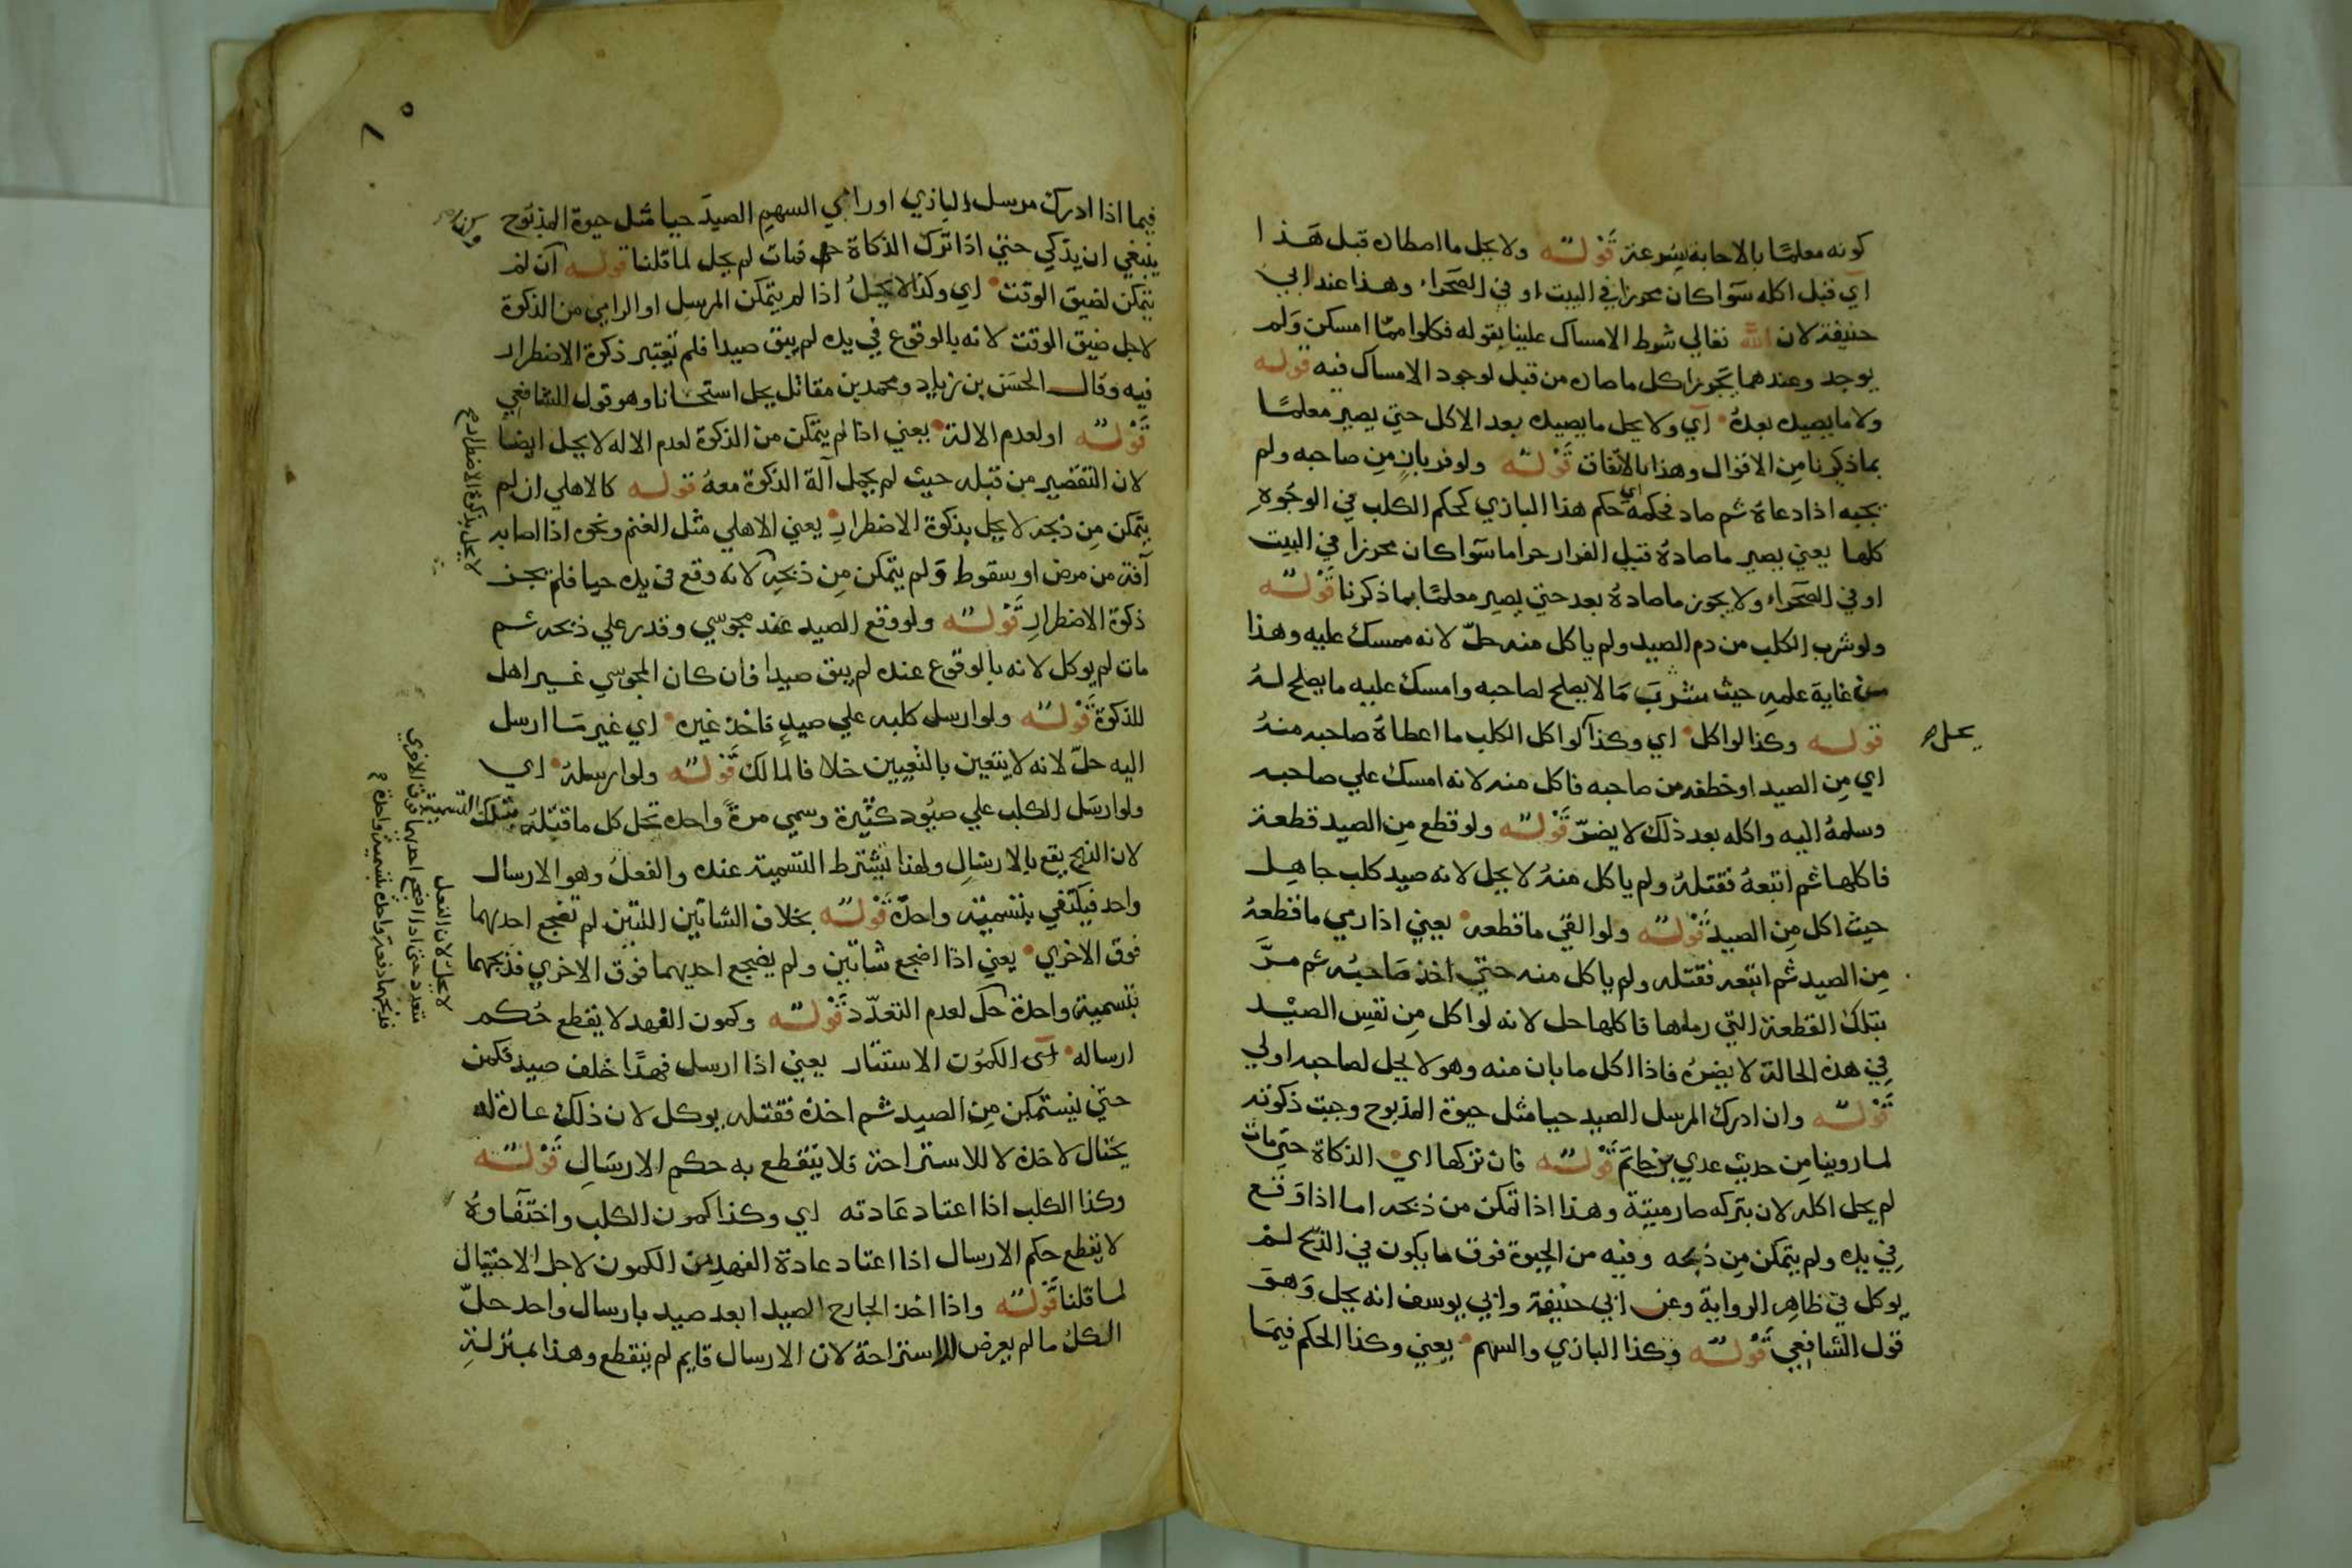 كونه معلمًا بالاجابة بسرعة قوله ولا يحل ما اصطاد قبل هذا
آي قبل اكله سوا كان محرزا في البيت او في الصحراء وهذا عند ابي
حنيفة لان الله تعالي شرط الامساك علينا بقوله فكلوا مما امسكن ولم
يوجد وعندهما يجوز اكل ما صاد من قبل لوجود الامساك فيه قوله
ولا ما يصيد بعده اي ولا يحل ما يصيد بعد الاكل حتي يصير معلمًا
بما ذكرنا من الاقوال وهذا بالاتفاق قوله ولو فر باز من صاحبه ولم
يجبه اذا دعاه ثم صاد فحكمه اي حكم هذا البازي كحكم الكلب في الوجوه
كلها يعني يصير ما صاده قبل الفرار حراما سوا كان محرزا في البيت
او في الصحراء ولا يجوز ما صاده بعد حتي يصير معلمًا بما ذكرنا قوله
ولو شرب الكلب من دم الصيد ولم ياكل منه حلّ لانه ممسك عليه وهذا
من غاية علمه حيث شرب ما لا يصلح لصاحبه وامسك عليه ما يصلح له
قوله وكذا لو اكل اي وكذا لو اكل الكلب ما اعطاه صاحبه منه
يحل
اي من الصيد او خطفه من صاحبه فاكل منه لانه امسك علي صاحبه
وسلمه اليه واكله بعد ذلك لا يضرّ قوله ولو قطع من الصيد قطعة
فاكلها ثم اتبعه فقتله ولم ياكل منه لا يحل لانه صيد كلب جاهل
حيث اكل من الصيد قوله ولو القي ما قطعه يعني اذا رمي ما قطعه
من الصيد ثم اتبعه فقتله ولم ياكل منه حتي اخذ صاحبه ثم مرّ
بتلك القطعة التي رماها فاكلها حل لانه لو اكل من نفس الصيد
في هذه الحالة لا يضره فاذا اكل ما بان منه وهو لا يحل لصاحبه اولي
قوله وان ادرك المرسل الصيد حيا مثل حيوة المذبوح وجبت ذكوته
لما روينا من حديث عدي بن حاتم قوله فان تركها اي الذكاة حتي مات
لم يحل اكله لان بتركه صار ميتة وهذا اذا تمكن من ذبحه اما اذا وقع
في يده ولم يتمكن من ذبحه وفيه من الحيوة فوق ما يكون في الذبح لم
يوكل في ظاهر الرواية وعن ابي حنيفة وابي يوسف انه يحل وهو
قول الشافعي قوله وكذا البازي والسهم يعني وكذا الحكم فيما
فيما اذا ادرك مرسل البازي او رامي السهم الصيد حيا مثل حيوة المذبوح
ينبغي ان يذكي حتي اذا ترك الذكاة فمات لم يحل لما قلنا قوله آن لم
يتمكن لضيق الوقت اي وكذا لا يحل اذا لم يتمكن المرسل او الرامي من الذكوة
لاجل ضيق الوقت لانه بالوقوع في يده لم يبق صيدا فلم تعتبر ذكوة الاضطرار
فيه وقال الحسن بن زياد ومحمد بن مقاتل يحل استحسانا وهو قول الشافعي
قوله او لعدم الالة يعني اذا لم يتمكن من الذكوة لعدم الاله لا يحل ايضا
لان التقصير من قبله حيث لم يحمل آلة الذكوة معه قوله كالاهلي ان لم
يتمكن من ذبحه لا يحل بذكوة الاضطرار يعني الاهلي مثل الغنم ونحوه اذا اصابه
لا يحل بذكوة الاضطرار
آفة من مرض او سقوط ولم يتمكن من ذبحه لانه وقع في يده حيا فلم يجز
ذكوة الاضطرار قوله ولو وقع الصيد عند مجوسي وقدر علي ذبحه ثم
مات لم يوكل لانه بالوقوع عنده لم يبق صيدا فان كان المجوسي غير اهل
للذكوة قوله ولو ارسل كلبه علي صيد فاخذ غيره اي غير ما ارسل
اليه حلّ لانه لا يتعين بالتعيين خلافا لمالك قوله ولو ارسله اي
ولو ارسل الكلب علي صيود كثيرة وسمي مرة واحدة تحل كل ما قتله بتلك التسمية
لان الذبح يقع بالارسال ولهذا تشترط التسمية عنده والفعل وهو الارسال
واحد فيكتفي بتسمية واحدة قوله بخلاف الشاتين اللتين لم تضجع احدهما
فوق الاخري يعني اذا اضجع شاتين ولم يضجع احديهما فوق الاخري فذبحهما
لا يحل لان الفعل
متعدد حتي اذا اضجع احديهما فوق الاخري
فذبحهما دفعة واحدة بتسمية واحدة
بتسمية واحدة حل لعدم التعدّد قوله وكمون الفهد لا يقطع حكم
ارساله الكمون الاستتار يعني اذا ارسل فهدًا خلف صيد فكمن
حتي ليستمكن من الصيد ثم اخذه فقتله يوكل لان ذلك عادة له
يحتال لاخذه لا للاستراحة فلا ينقطع به حكم الارسال قوله
وكذا الكلب اذا اعتاد عادته اي وكذا كمون الكلب واختفاوه
لا يقطع حكم الارسال اذا اعتاد عادة الفهد من الكمون لاجل الاحتيال
لما قلنا قوله واذا اخذ الجارح الصيد ابعد صيد بارسال واحد حلّ
الكل ما لم يعرض للاستراحة لان الارسال قايم لم ينقطع وهذا بمنزلة